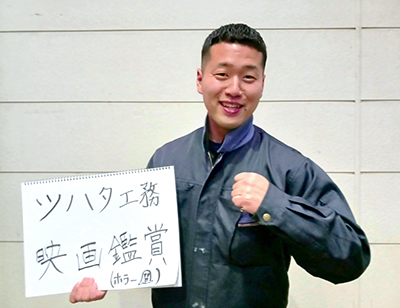 ツハタ工務
映画鑑賞
(ホラー